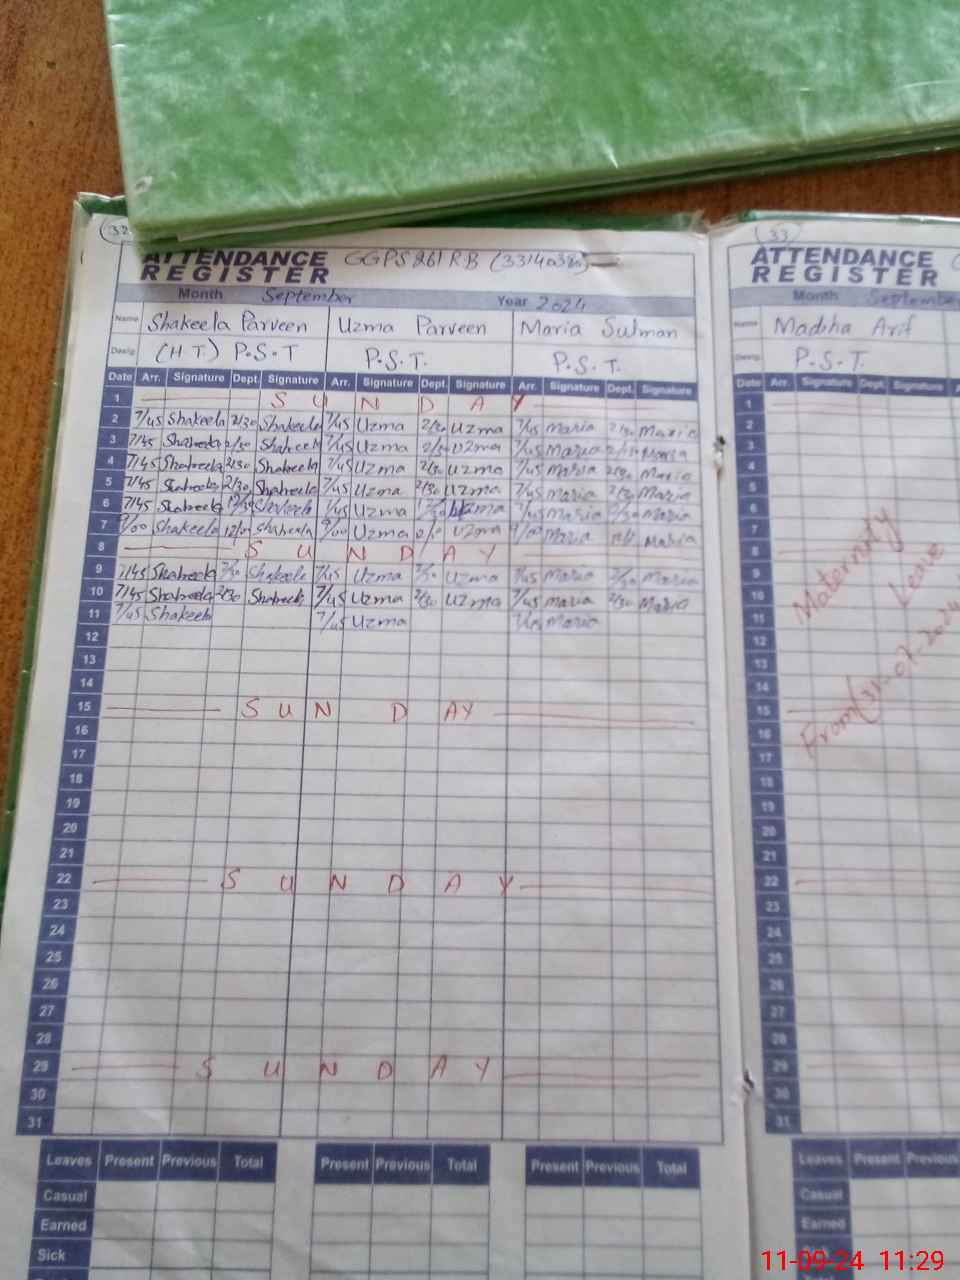 32
ATTENDANCE
REGISTER
GGPS 261 RB
Month September Year 2024
Name Shakeela Parveen Uzma Parveen Maria Sulman
Desig. (H T.) P.S.T P.S.T. P.S.T.
Date Arr. Signature Dept. Signature Arr. Signature Dept. Signature Arr. Signature Dept. Signature
1 S U N D A Y
2 7/45 Shakeela 2/30 Shakeela 7/45 Uzma 2/30 Uzma 7/45 Maria 2/30 Maria
3 7/45 Shakeela 2/30 Shakeela 7/45 Uzma 2/30 Uzma 7/45 Maria Maria
4 7/45 Shakeela 2/30 Shakeela 7/45 Uzma 2/30 Uzma 7/45 Maria 2/30 Maria
5 7/45 Shakeela 2/30 Shakeela 7/45 Uzma 2/30 Uzma 7/45 Maria 2/30 Maria
6 7/45 Shakeela Shakeela 7/45 Uzma Uzma 7/45 Maria Maria
7 9/00 Shakeela Shakeela 9/00 Uzma Uzma 9/00 Maria Maria
8 S U N D A Y
9 7/45 Shakeela 2/30 Shakeela 7/45 Uzma 2/30 Uzma 7/45 Maria 2/30 Maria
10 7/45 Shakeela 2/30 Shakeela 7/45 Uzma 2/30 Uzma 7/45 Maria 2/30 Maria
11 7/45 Shakeela 7/45 Uzma 7/45 Maria
12
13
14
15 S U N D A Y
16
17
18
19
20
21
22 S U N D A Y
23
24
25
26
27
28
29 S U N D A Y
30
31
Leaves Present Previous Total Present Previous Total Present Previous Total
Casual
Earned
Sick
33
ATTENDANCE
REGISTER
Month September
Name Madiha Arif
Desig. P.S.T.
Date Arr. Signature Dept. Signature
1
2
3
4
5
6
7
8
9
10
11
12
13
14
15
16
17
18
19
20
21
22
23
24
25
26
27
28
29
30
31
Maternity
Leave
From (31-07-
Leaves Present Previous
Casual
Earned
11-09-24 11:29